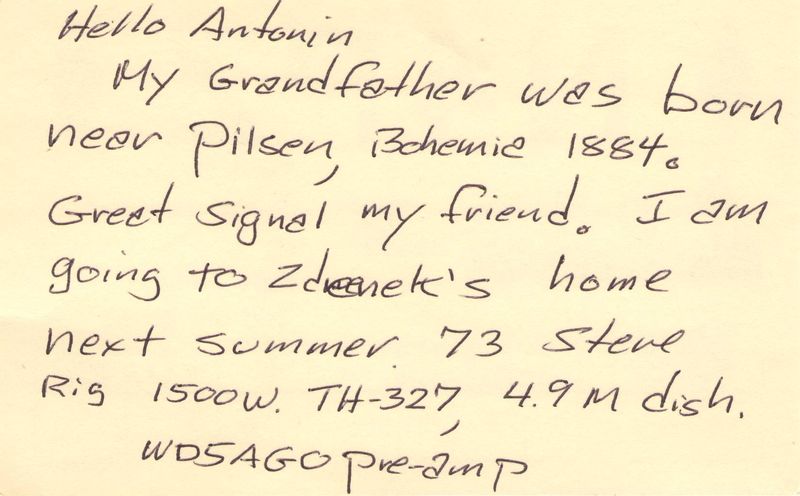 Hello Antonin
My Grandfather was born
near Pilsen, Bohemia 1884.
Great signal my friend. I am
going to Zdenek's home
next summer. 73 Steve
Rig 1500W. TH-327, 4.9 M dish.
WD5AGO pre-amp